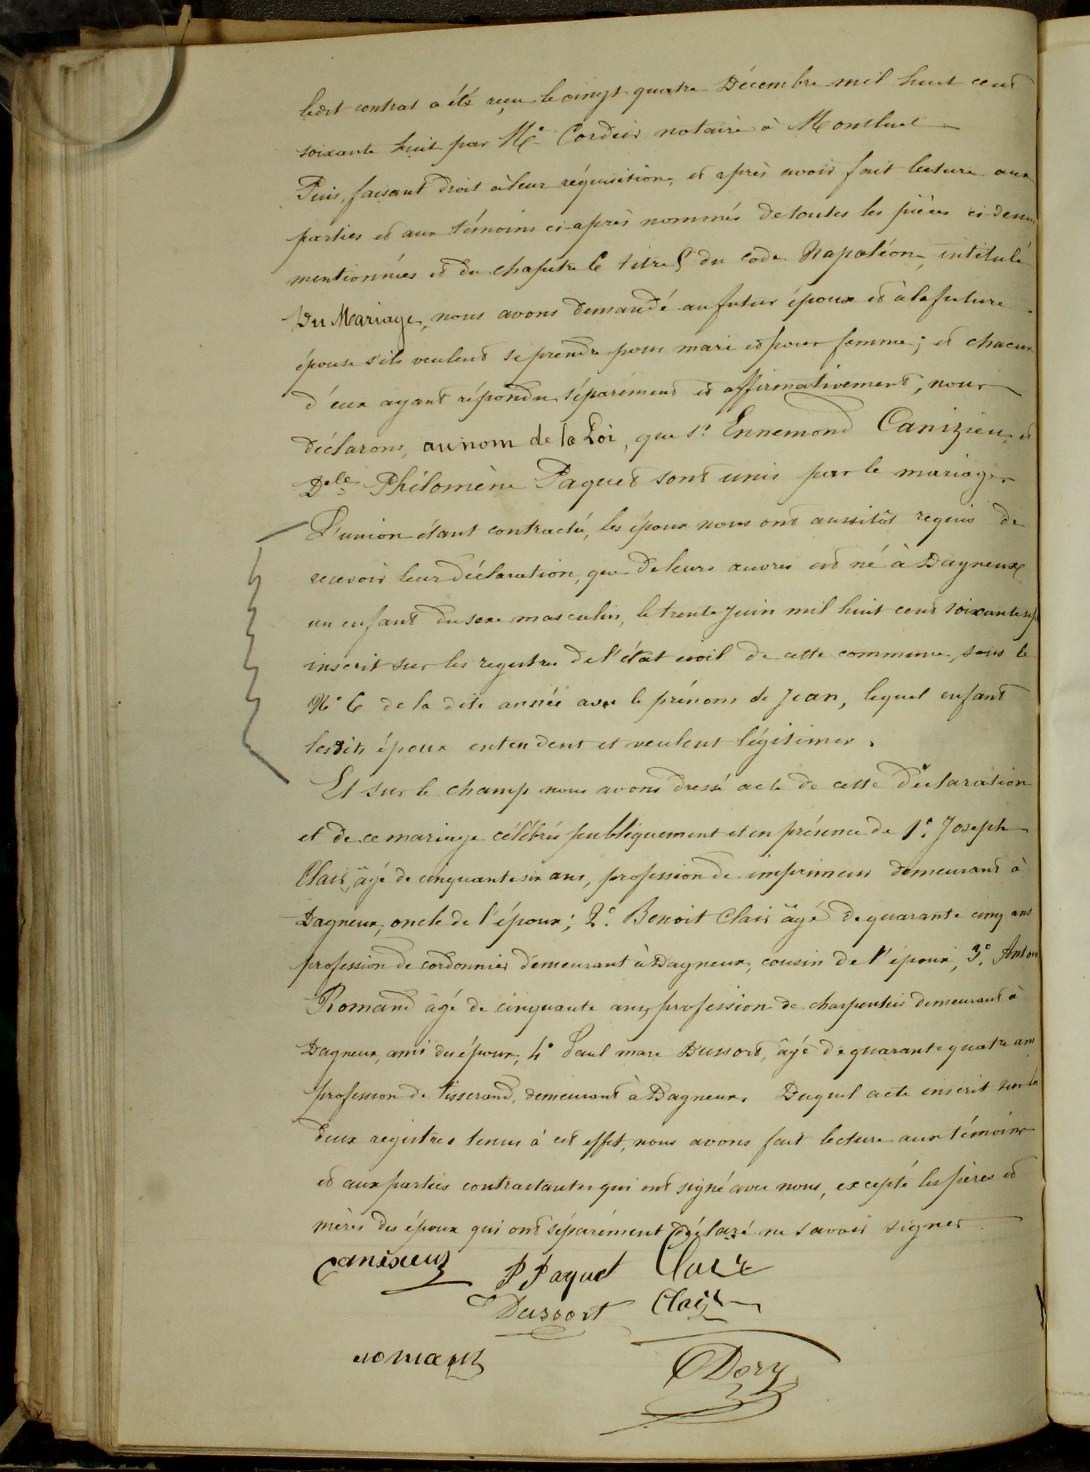 ledit contrat a été reçu le vingt quatre Décembre mil huit cent
soixante huit par Me Cordier notaire à Montluel
Puis, faisant droit à leur réquisition, et après avoir fait lecture aux
parties et aux témoins ci-après nommés de toutes les pièces ci-dessus
mentionnées et du chapitre 6 titre 5 du code Napoléon, intitulé
Du Mariage, nous avons demandé au futur époux et à la future
épouse s'ils veulent se prendre pour mari et pour femme; et chacun
d'eux ayant répondu séparément et affirmativement, nous
déclarons, au nom de la Loi, que sr Ennemond Canizieu, et
Delle Philomène Paquet sont unis par le mariage
L'union étant contractée, les époux nous ont aussitôt requis de
recevoir leur déclaration, que de leurs œuvres est né à Dagneux
un enfant du sexe masculin, le trente Juin mil huit cent soixante sept
inscrit sur les registres de l'état civil de cette commune, sous le
No 6 de la dite année avec le prénom de Jean, lequel enfant
lesdits époux entendent et veulent légitimer.
Et sur le champ nous avons dressé acte de cette déclaration
et de ce mariage célébré publiquement et en présence de 1o Joseph
Clair, âgé de cinquante six ans, profession de imprimeur demeurant à
Dagneux, oncle de l'époux; 2o Benoit Clair âgé de quarante cinq ans
profession de cordonnier demeurant à Dagneux, cousin de l'époux, 3o Antoi
Romand âgé de cinquante ans profession de charpentier demeurant à
Dagneux, ami des époux, 4o Paul marc Dussort, âgé de quarante quatre ans
profession de tisserand, demeurant à Dagneux. Duquel acte inscrit sur les
deux registres tenus à cet effet, nous avons fait lecture aux témoins
et aux parties contractantes qui ont signé avec nous, excepté les pères et
mères des époux qui ont séparément déclaré ne savoir signer
Canixieux P Paquet Clair
Dussort Clair
romand Dory